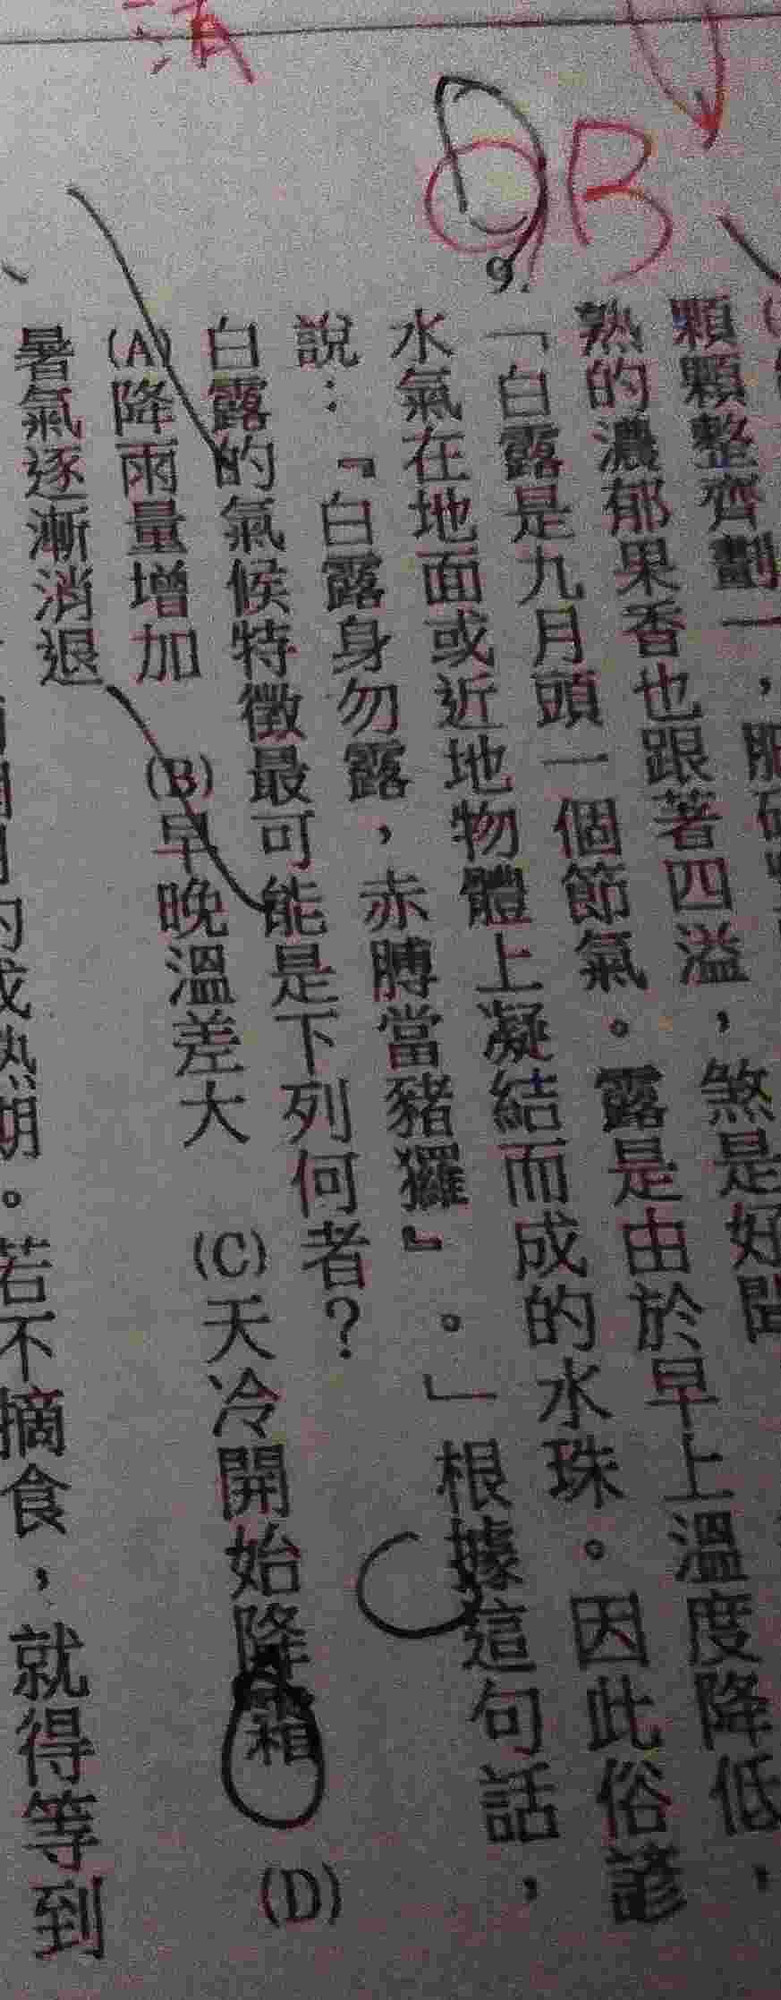 顆顆整齊劃一，
熟的濃郁果香也跟著四溢，煞是好聞
9.「白露是九月頭一個節氣。露是由於早上溫度降低，
水氣在地面或近地物體上凝結而成的水珠。因此俗諺
說：『白露身勿露，赤膊當豬玀』。」根據這句話，
白露的氣候特徵最可能是下列何者？
(A)降雨量增加 (B)早晚溫差大 (C)天冷開始降霜 (D)
暑氣逐漸消退
成熟期。若不摘食，就得等到
B